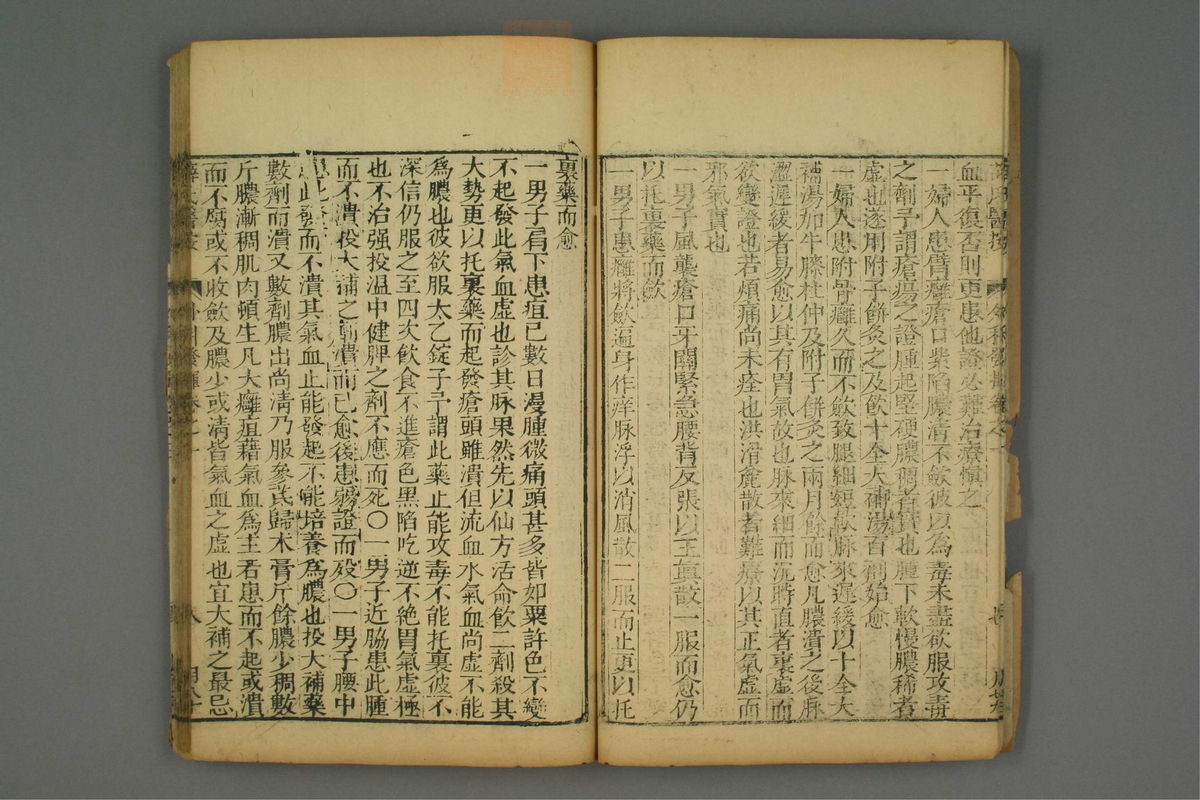 血平復否則更患他證必難治療愼之
一婦人患臂癰瘡口紫陷膿淸不斂彼以爲毒未盡欲服攻毒
之劑予謂瘡瘍之證腫起堅硬膿稠者實也腫下軟慢膿稀者
虛也遂用附子餠灸之及飮十全大補湯百劑始愈
一婦人患附骨癰久而不斂致腿細短軟脉來遲緩以十全大
補湯加牛膝杜仲及附子餠灸之兩月餘而愈凡膿潰之後脉
濇遲緩者易愈以其有胃氣故也脉來細而沉時直者裏虛而
欲變證也若煩痛尚未痊也洪滑麄散者難療以其正氣虛而
邪氣實也
一男子風襲瘡口牙關緊急腰背反張以玉眞散一服而愈仍
以托裏藥而斂
一男子患癰將斂遍身作痒脉浮以消風散二服而止更以托
裏藥而愈
一男子肩下患疽已數日漫腫微痛頭甚多皆如粟許色不變
不起發此氣血虛也診其脉果然先以仙方活命飮二劑殺其
大勢更以托裏藥而起發瘡頭雖潰但流血水氣血尚虛不能
爲膿也彼欲服太乙錠子予謂此藥止能攻毒不能托裏彼不
深信仍服之至四次飮食不進瘡色黑陷吃逆不絶胃氣虛極
也不治强投温中健脾之劑不應而死〇一男子近脇患此腫
而不潰投大補之劑潰而已愈後患弱證而殁〇一男子腰中
患此發而不潰其氣血止能發起不能培養爲膿也投大補藥
數劑而潰又數劑膿出尚淸乃服參芪歸术膏斤餘膿少稠數
斤膿漸稠肌肉頓生凡大癰疽藉氣血爲主若患而不起或潰
而不腐或不收斂及膿少或淸皆氣血之虛也宜大補之最忌